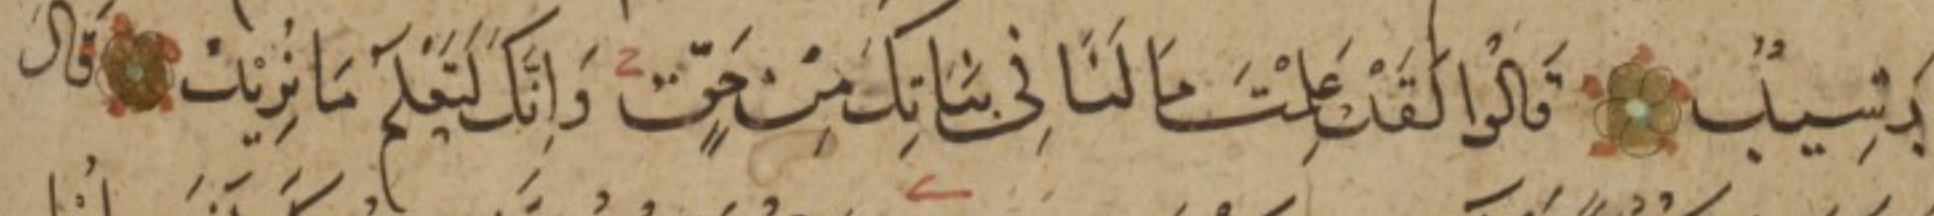 رَشِيدٌ قَالُوا لَقَدْ عَلِمْتَ مَا لَنَا فِي بَنَاتِكَ مِنْ حَقٍّ وَإِنَّكَ لَتَعْلَمُ مَا نُرِيدُ قَالَ